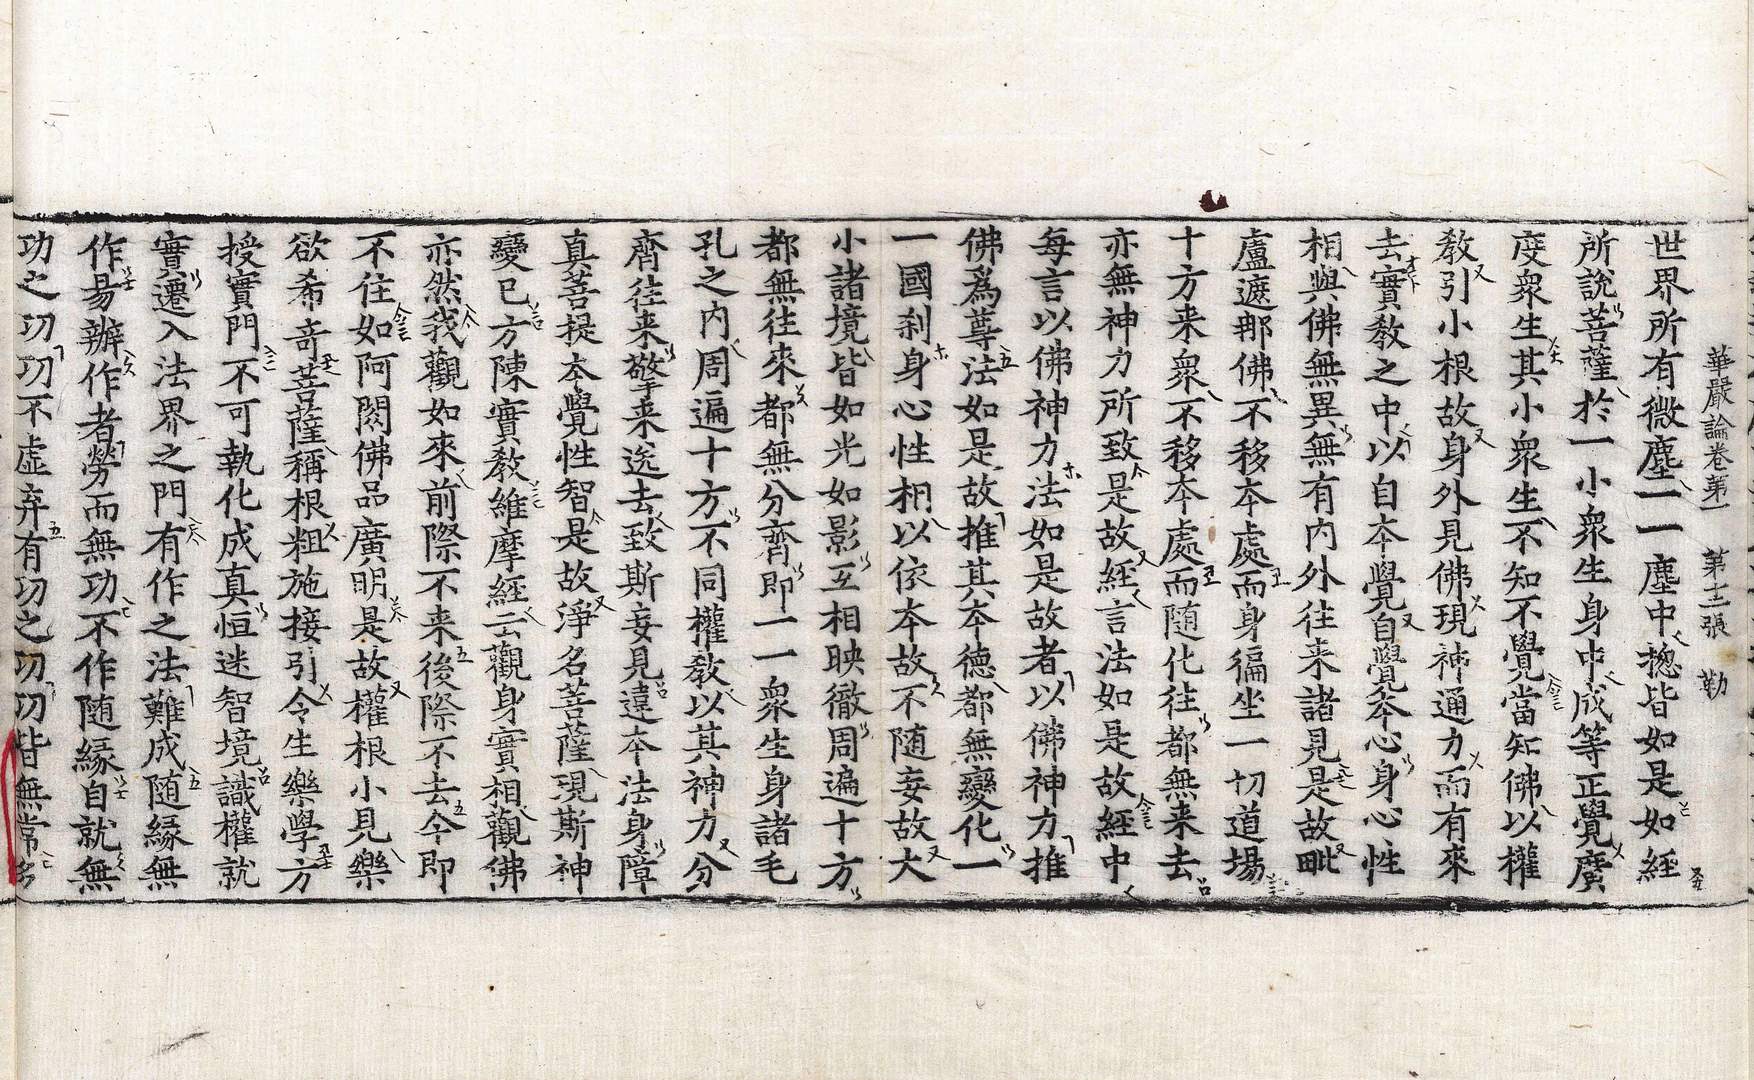 華嚴論卷第一 第十二張 勒
世界所有微塵一一塵中揔皆如是如經
所說菩薩於一小衆生身中成等正覺廣
度衆生其小衆生不知不覺當知佛以權
教引小根故身外見佛現神通力而有來
去實教之中以自本覺自覺本心身心性
相與佛無異無有内外往来諸見是故毗
盧遮那佛不移本處而身徧坐一切道場
十方来衆不移本處而随化往都無来去
亦無神力所致是故經言法如是故經中
每言以佛神力法如是故者以佛神力推
佛爲尊法如是故推其本德都無變化一
一國刹身心性相以依本故不随妄故大
小諸境皆如光如影互相映徹周遍十方
都無往來都無分齊即一一衆生身諸毛
孔之内周遍十方不同權教以其神力分
齊往来擎来迯去致斯妄見違本法身障
真菩提本覺性智是故淨名菩薩現斯神
變已方陳實教維摩經云觀身實相觀佛
亦然我觀如來前際不来後際不去今即
不住如阿閦佛品廣明是故權根小見樂
欲希竒菩薩稱根粗施接引令生樂學方
授實門不可執化成真恒迷智境識權就
實遷入法界之門有作之法難成随緣無
作易辦作者勞而無功不作随緣自就無
功之功功不虚弃有功之功功皆無常多